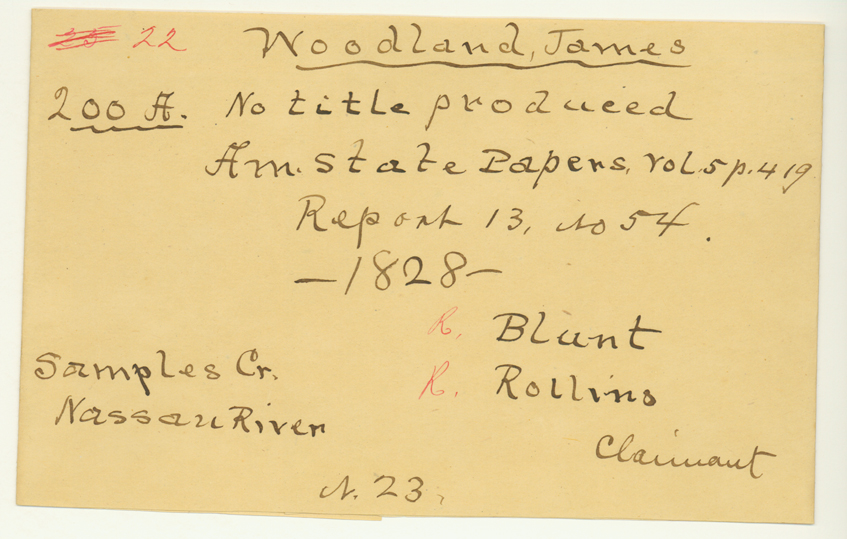 22 Woodland, James
200 A. No title produced
Am. State Papers, Vol. 5 p. 419
Report 13, No 54.
— 1828 —
R. Blunt
Samples Cr. R. Rollins
Nassau River
Claimant
N. 23.